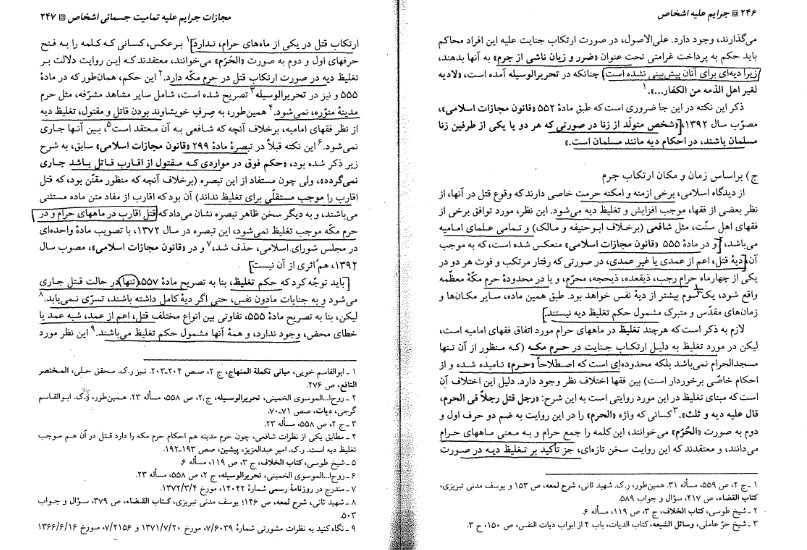 ۲۴۶ جرایم علیه اشخاص
می‌گذارند، وجود دارد. علی‌الاصول، در صورت ارتکاب جنایت علیه این افراد محاکم
باید حکم به پرداخت غرامتی تحت عنوان «ضرر و زیان ناشی از جرم» به آنها بدهند،
زیرا دیه‌ای برای آنان پیش‌بینی نشده است؛ چنانکه در تحریرالوسیله آمده است، «لادیه
لغیر اهل الذمه من الکفار...».۱
ذکر این نکته در این جا ضروری است که طبق مادۀ ۵۵۲ «قانون مجازات اسلامی»،
مصوّب سال ۱۳۹۲، «شخص متولّد از زنا در صورتی که هر دو یا یکی از طرفین زنا
مسلمان باشند، در احکام دیه مانند مسلمان است.»
ج) براساس زمان و مکان ارتکاب جرم
از دیدگاه اسلامی، برخی ازمنه و امکنه حرمت خاصی دارند که وقوع قتل در آنها، از
نظر بعضی از فقها، موجب افزایش و تغلیظ دیه می‌شود. این نظر، مورد توافق برخی از
فقهای اهل سنّت، مثل شافعی (برخلاف ابوحنیفه و مالک) و تمامی علمای امامیه
می‌باشد، و در مادۀ ۵۵۵ «قانون مجازات اسلامی» منعکس شده است، که به موجب
آن، دیۀ قتل، اعم از عمدی یا غیر عمدی، در صورتی که رفتار مرتکب و فوت هر دو در
یکی از چهارماه حرام رجب، ذیقعده، ذیحجه، محرّم، و یا در محدودۀ حرم مکّۀ معظّمه
واقع شود، یک سوم بیشتر از دیۀ نفس خواهد بود. طبق همین ماده، سایر مکان‌ها و
زمان‌های مقدّس و متبرک مشمول حکم تغلیظ دیه نیستند.
لازم به ذکر است که هرچند تغلیظ در ماههای حرام مورد اتفاق فقهای امامیه است،
لیکن در مورد تغلیظ به دلیل ارتکاب جنایت در حرم مکه (که منظور از آن تنها
مسجدالحرام نمی‌باشد بلکه محدوده‌ای است که اصطلاحاً «حرم» نامیده شده و از
احکام خاصی برخوردار است) بین فقها اختلاف نظر وجود دارد. دلیل این اختلاف آن
است که مبنای تغلیظ در این مورد روایتی است به این شرح: «رجل قتل رجلاً فی الحرم،
قال علیه دیه و ثلث».۳ کسانی که واژه «الحرم» را در این روایت به ضم دو حرف اول و
دوم به صورت «الحُرُم» می‌خوانند، این کلمه را جمع حرام و به معنی ماههای حرام
می‌دانند، و معتقدند که این روایت سخن تازه‌ای، جز تأکید بر تغلیظ دیه در صورت
۱ ـ ج ۲، ص ۵۵۹، مسأله ۳۱. همین‌طور، ر.ک. شهید ثانی، شرح لمعه، ص ۱۵۳ و یوسف مدنی تبریزی،
کتاب القضاء، ص ۴۱۷، سؤال و جواب ۵۸۹.
۲ ـ شیخ طوسی، کتاب الخلاف، ج ۳، ص ۱۱۹، مسأله ۶.
۳ ـ شیخ حرّ عاملی، وسائل الشیعه، کتاب الدیات، باب ۳ از ابواب دیات النفس، ص ۱۵۰، ح ۳.
مجازات جرایم علیه تمامیت جسمانی اشخاص ۲۴۷
ارتکاب قتل در یکی از ماه‌های حرام، ندارد.۱ برعکس، کسانی که کلمه را به فتح
حرفهای اول و دوم به صورت «الحَرَم» می‌خوانند، معتقدند که این روایت دلالت بر
تغلیظ دیه در صورت ارتکاب قتل در حرم مکّه دارد.۲ این حکم، همان‌طور که در مادۀ
۵۵۵ و نیز در تحریرالوسیله۳ تصریح شده است، شامل سایر مشاهد مشرّفه، مثل حرم
مدینۀ منوّره، نمی‌شود.۴ همین‌طور، به صِرفِ خویشاوند بودن قاتل و مقتول، تغلیظ دیه
از نظر فقهای امامیه، برخلاف آنچه که شافعی به آن معتقد است۵، بین آنها جاری
نمی‌شود.۶ این نکته قبلاً در تبصرۀ مادۀ ۲۹۹ «قانون مجازات اسلامی» سابق، به شرح
زیر ذکر شده بود، «حکم فوق در مواردی که مقتول از اقارب قاتل باشد جاری
نمی‌گردد»، ولی چون مستفاد از این تبصره (برخلاف آنچه که منظور مقنّن بود، که قتل
اقارب را موجب مستقلّی برای تغلیظ نداند) آن بود که اقارب از مفاد متن ماده مستثنی
می‌باشند، و به دیگر سخن ظاهر تبصره نشان می‌داد که قتل اقارب در ماههای حرام و در
حرم مکّه موجب تغلیظ نمی‌شود، این تبصره در سال ۱۳۷۲، با تصویب مادۀ واحده‌ای
در مجلس شورای اسلامی، حذف شد،۷ و در «قانون مجازات اسلامی»، مصوب سال
۱۳۹۲، هم اثری از آن نیست.
باید توجّه کرد که حکم تغلیظ، بنا به تصریح مادۀ ۵۵۷، تنها در حالت قتل جاری
می‌شود و به جنایات مادون نفس، حتی اگر دیۀ کامل داشته باشند، تسرّی نمی‌یابد.۸
لیکن، بنا به تصریح مادۀ ۵۵۵، تفاوتی بین انواع مختلف قتل، اعم از عمد، شبه عمد یا
خطای محض، وجود ندارد، و همۀ آنها مشمول حکم تغلیظ می‌باشند.۹ این نظر مورد
۱ ـ ابوالقاسم خویی، مبانی تکملة المنهاج، ج ۲، صص ۲۰۴-۲۰۳. نیز ر.ک. محقق حلی، المختصر
النافع، ص ۲۷۶.
۲ ـ روح‌ا...الموسوی الخمینی، تحریرالوسیله، ج۲، ص ۵۵۸، مسأله ۲۳. همین‌طور، ر.ک. ابوالقاسم
گرجی، دیات، صص ۷۱-۷۰.
۳ ـ ج ۲، ص ۵۵۸، مسأله ۲۳.
۴ ـ مطابق یکی از نظرات شافعی، چون حرم مدینه هم احکام حرم مکه را دارد قتل در آن هم موجب
تغلیظ دیه است. ر.ک. امیر عبدالعزیز، پیشین، صص ۱۹۳-۱۹۲.
۵ ـ شیخ طوسی، کتاب الخلاف، ج ۳، ص ۱۱۹، مسأله ۶.
۶ ـ روح‌ا...الموسوی الخمینی، تحریرالوسیله، ج ۲، ص ۵۵۸، مسأله ۲۳.
۷ ـ مندرج در روزنامۀ رسمی شمارۀ ۱۴۰۴۲، مورخ ۱۳۷۲/۳/۴.
۸ ـ شهید ثانی، شرح لمعه، ص ۱۴۶؛ یوسف مدنی تبریزی، کتاب القضاء، ص ۳۷۹، سؤال و جواب
۵۰۳.
۹ ـ نگاه کنید به نظرات مشورتی شمارۀ ۷/۶۰۳۹، مورخ ۱۳۷۱/۷/۲۰ و ۷/۲۱۵۶، مورخ ۱۳۶۶/۶/۱۶